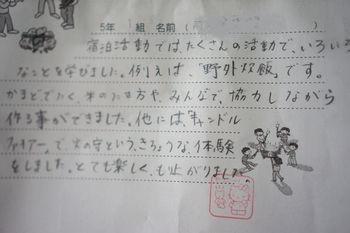 5年 1組 名前
宿泊活動では、たくさんの活動で、いろいろ
なことを学びました。例えば、「野外炊飯」です。
かまどでたく、米のたき方や、みんなで、協力しながら
作る事ができました。他には「キャンドル
ファイヤー」で、火の守という、きちょうな、体験
をしました。とても楽しく、もり上がりました。